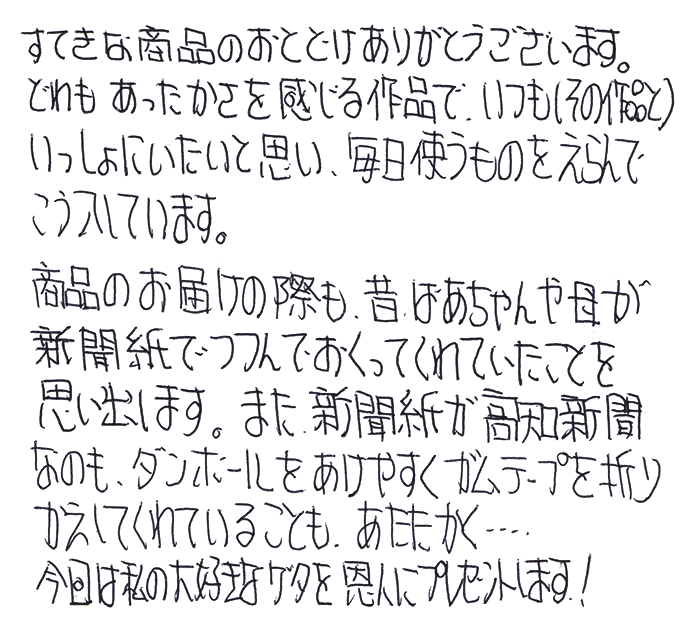 すてきな商品のおとどけありがとうございます。
どれも あったかさを感じる作品で、いつも(その作品と)
いっしょにいたいと思い、毎日使うものをえらんで
こう入しています。
商品のお届けの際も、昔、ばあちゃんや母が
新聞紙でつつんでおくってくれていたことを
思い出します。また、新聞紙が高知新聞
なのも、ダンボールをあけやすくガムテープを折り
かえしてくれていることも、あたたかく‥‥
今回は私の大好きなゲタを恩人にプレゼントします!